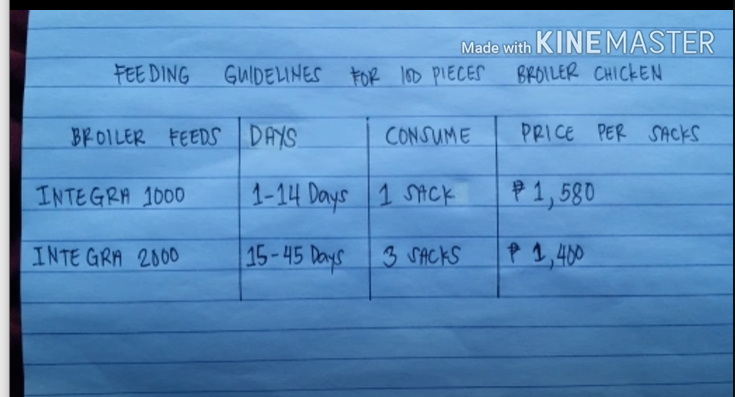 Made with KINEMASTER
FEEDING GUIDELINES FOR 100 PIECES BROILER CHICKEN
BROILER FEEDS DAYS CONSUME PRICE PER SACKS
INTEGRA 1000 1-14 Days 1 SACK ₱ 1,580
INTEGRA 2000 15-45 Days 3 SACKS ₱ 1,400